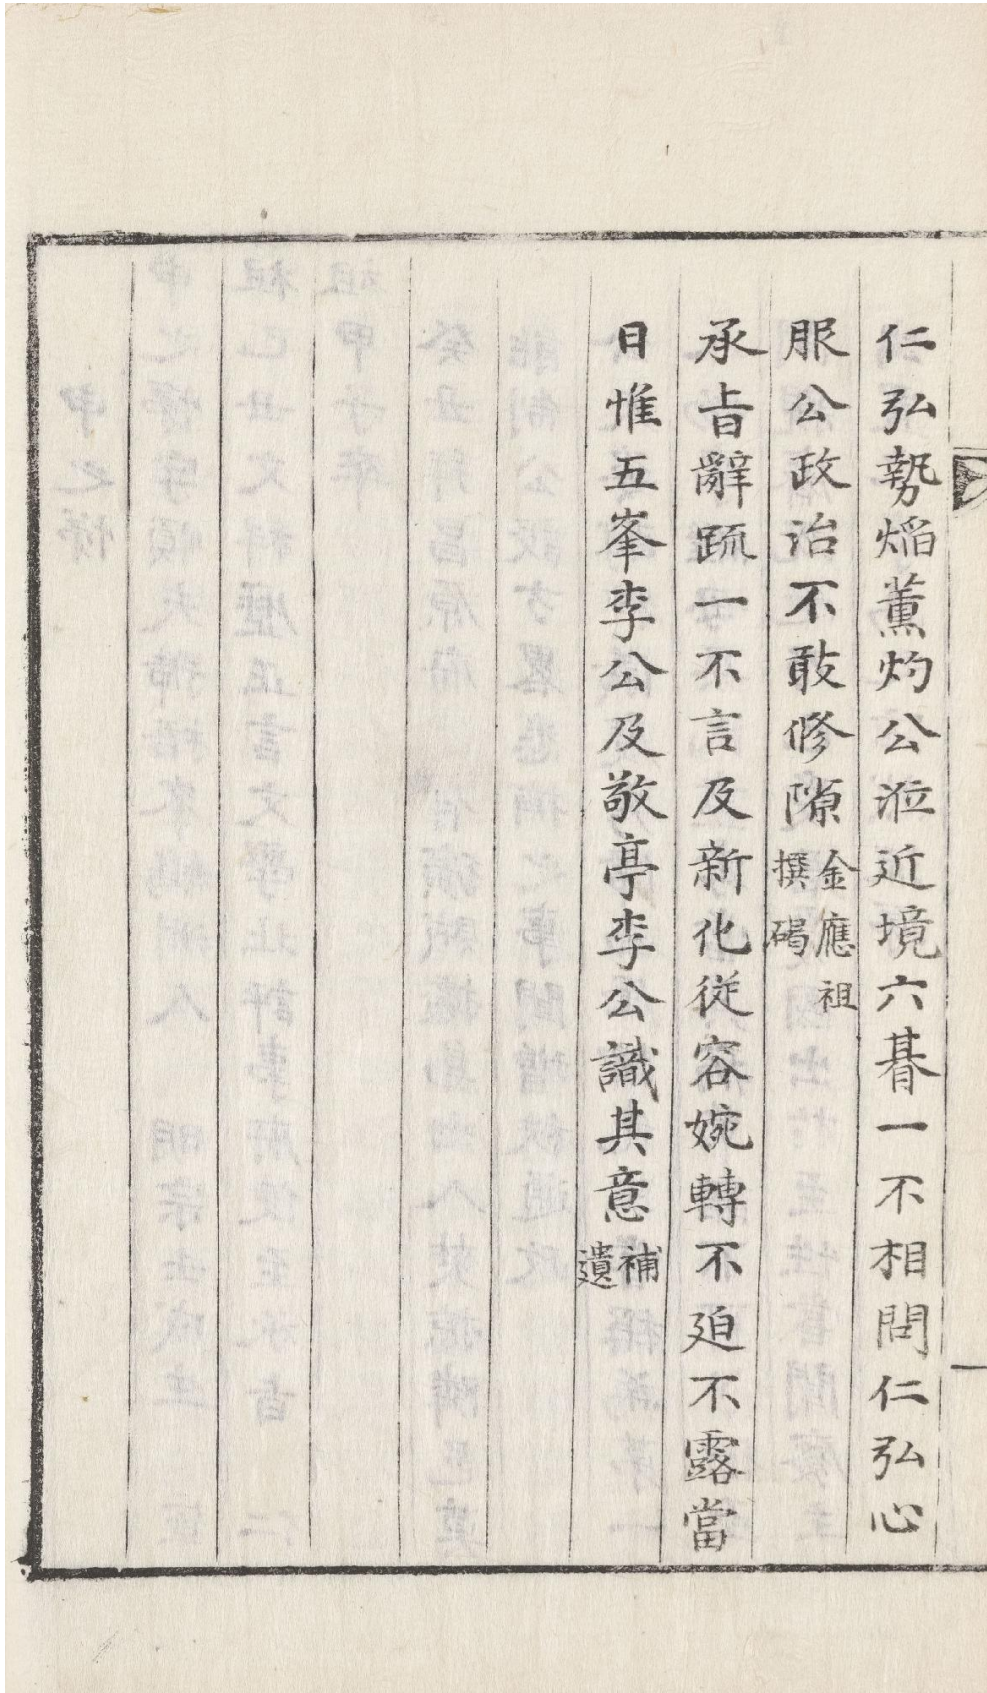 仁弘勢焰薰灼公涖近境六朞一不相問仁弘心
服公政治不敢修隙金應祖撰碣
承旨辭疏一不言及新化從容婉轉不廹不露當
日惟五峯李公及敬亭李公識其意補遺